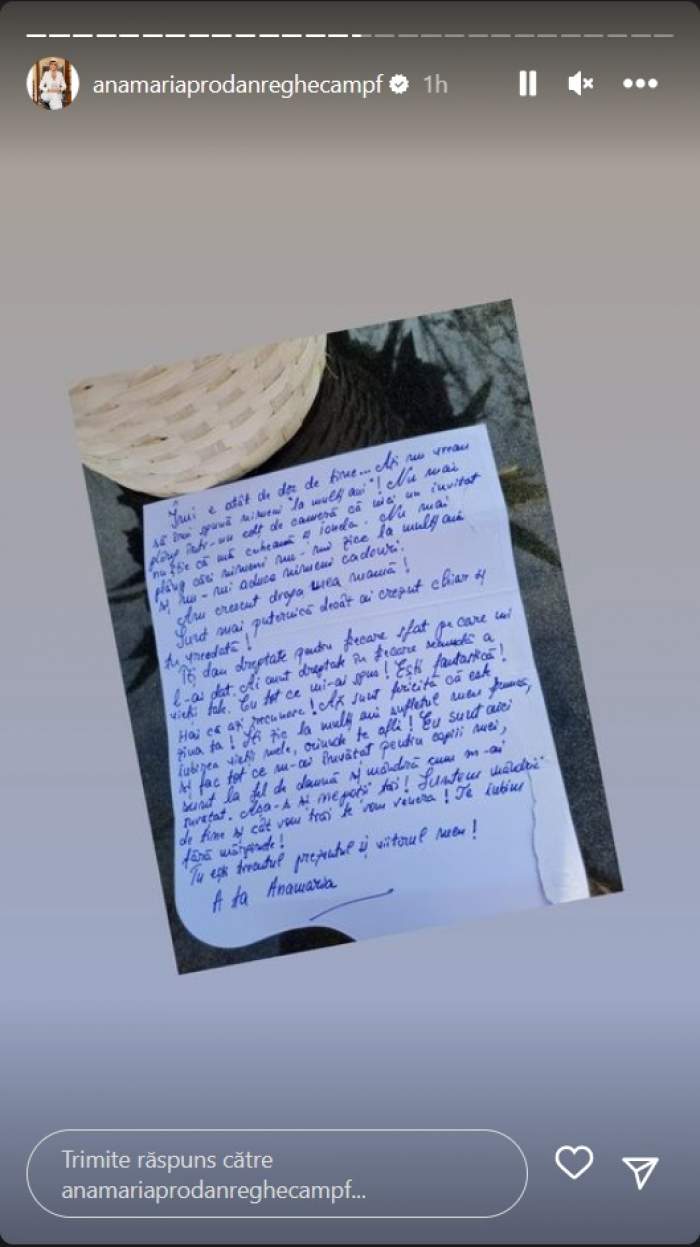 anamariaprodanreghecampf 1h
Îmi e atât de dor de tine... Azi nu vreau
să îmi spună nimeni "la mulți ani"! Nu mai
plâng într-un colț de cameră că nici un invitat
nu știe că mă cheamă și Ionela. Nu mai
plâng căci nimeni nu-mi zice la mulți ani
și nu-mi aduce nimeni cadouri.
Am crescut draga mea mamă!
Sunt mai puternică decât ai crezut chiar și
tu vreodată!
Îți dau dreptate pentru fiecare sfat pe care mi
l-ai dat. Ai avut dreptate în fiecare secundă a
vieții tale. Cu tot ce mi-ai spus! Ești fantastică!
Hai că azi recunosc! Azi sunt fericită că este
ziua ta! Îți zic la mulți ani sufletul meu frumos,
iubirea vieții mele, oriunde te afli! Eu sunt aici
și fac tot ce m-ai învățat pentru copiii mei,
sunt la fel de doamnă și mândră cum m-ai
învățat. Așa-s și nepoții tăi! Suntem mândri
de tine și cât vom trăi te vom venera! Te iubim
fără margini!
Tu ești trecutul prezentul și viitorul meu!
A ta Anamaria
Trimite răspuns către
anamariaprodanreghecampf...